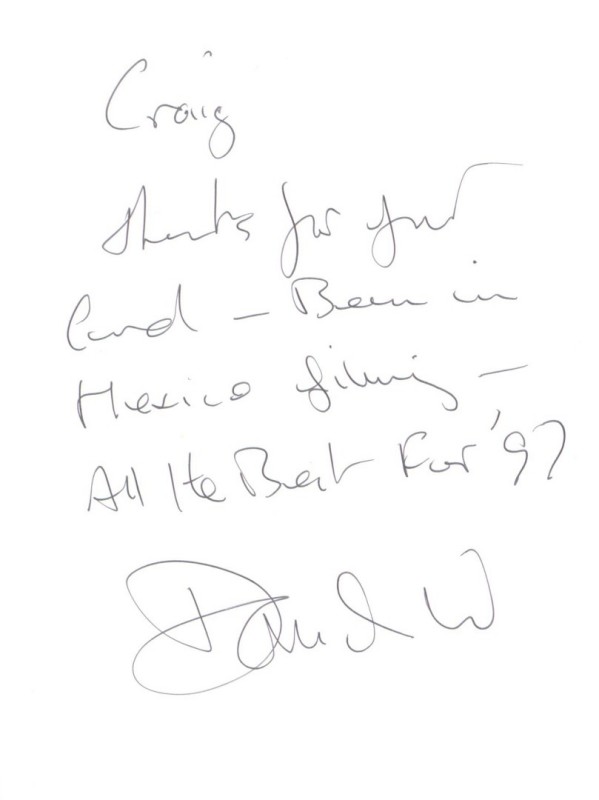 Craig
Thanks for your
Card – Been in
Mexico filming –
All the Best For '97
David W